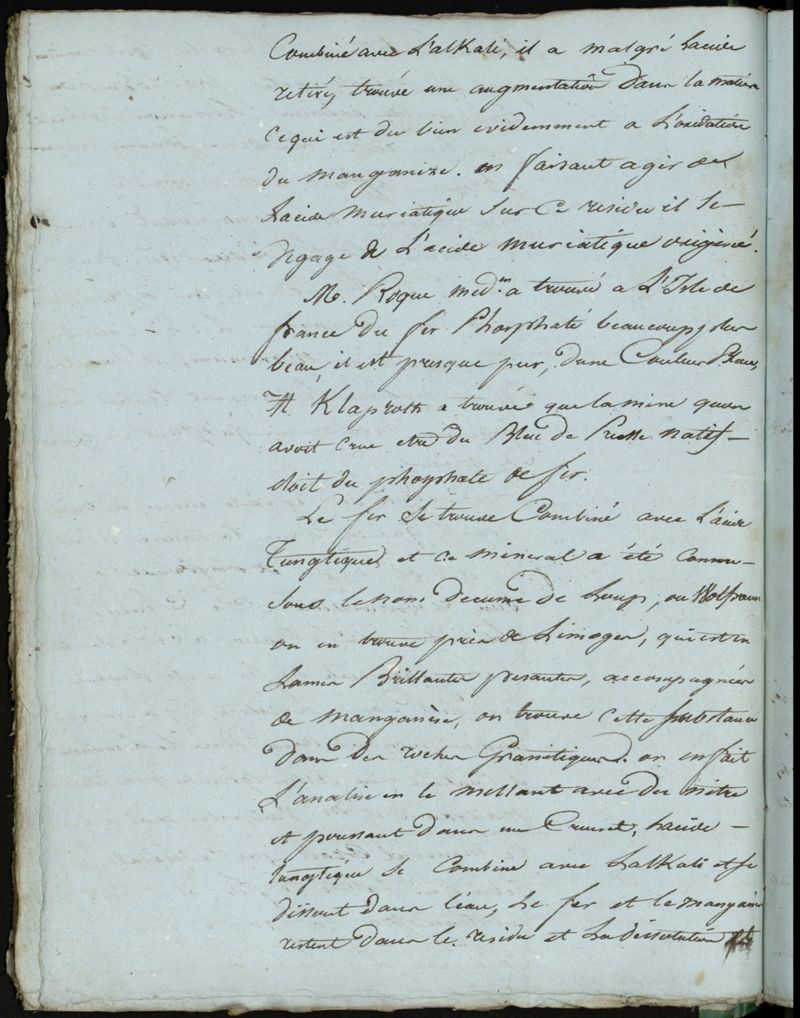 Combiné avec L'alkali, il a malgré Lacide
retiré, trouvé une augmentation dans la matiere
ce qui est du bien evidemment a L'oxidation
du manganeze. en faisant agir de
Lacide muriatique sur ce residu il se
degage de L'acide muriatique oxigéné.
M. Roque med.in a trouvé a L'Isle de
france du fer Phosphaté beaucoup plus
beau, il est presque pur, dune Couleur Bleue,
M. Klaproth a trouvé que la mine quon
avoit crue etre du Bleu de Prusse natif
etoit du phosphate de fer.
Le fer se trouve Combiné avec L'acide
Tungstique, et ce mineral a été Connu
sous le nom decume de Loup, ou Wolfram
on en trouve près de Limoges, qui est en
Lames Brillantes pesantes, accompagnées
de manganèse, on trouve cette substance
dans Des roches Granitiques. on en fait
L'analise en le mettant avec du nitre
et poussant dans un Creuset, Lacide
tungstique se Combine avec Lalkali et se
dissout dans l'eau, Le fer et le manganèse
restent dans le residu et La dissolution